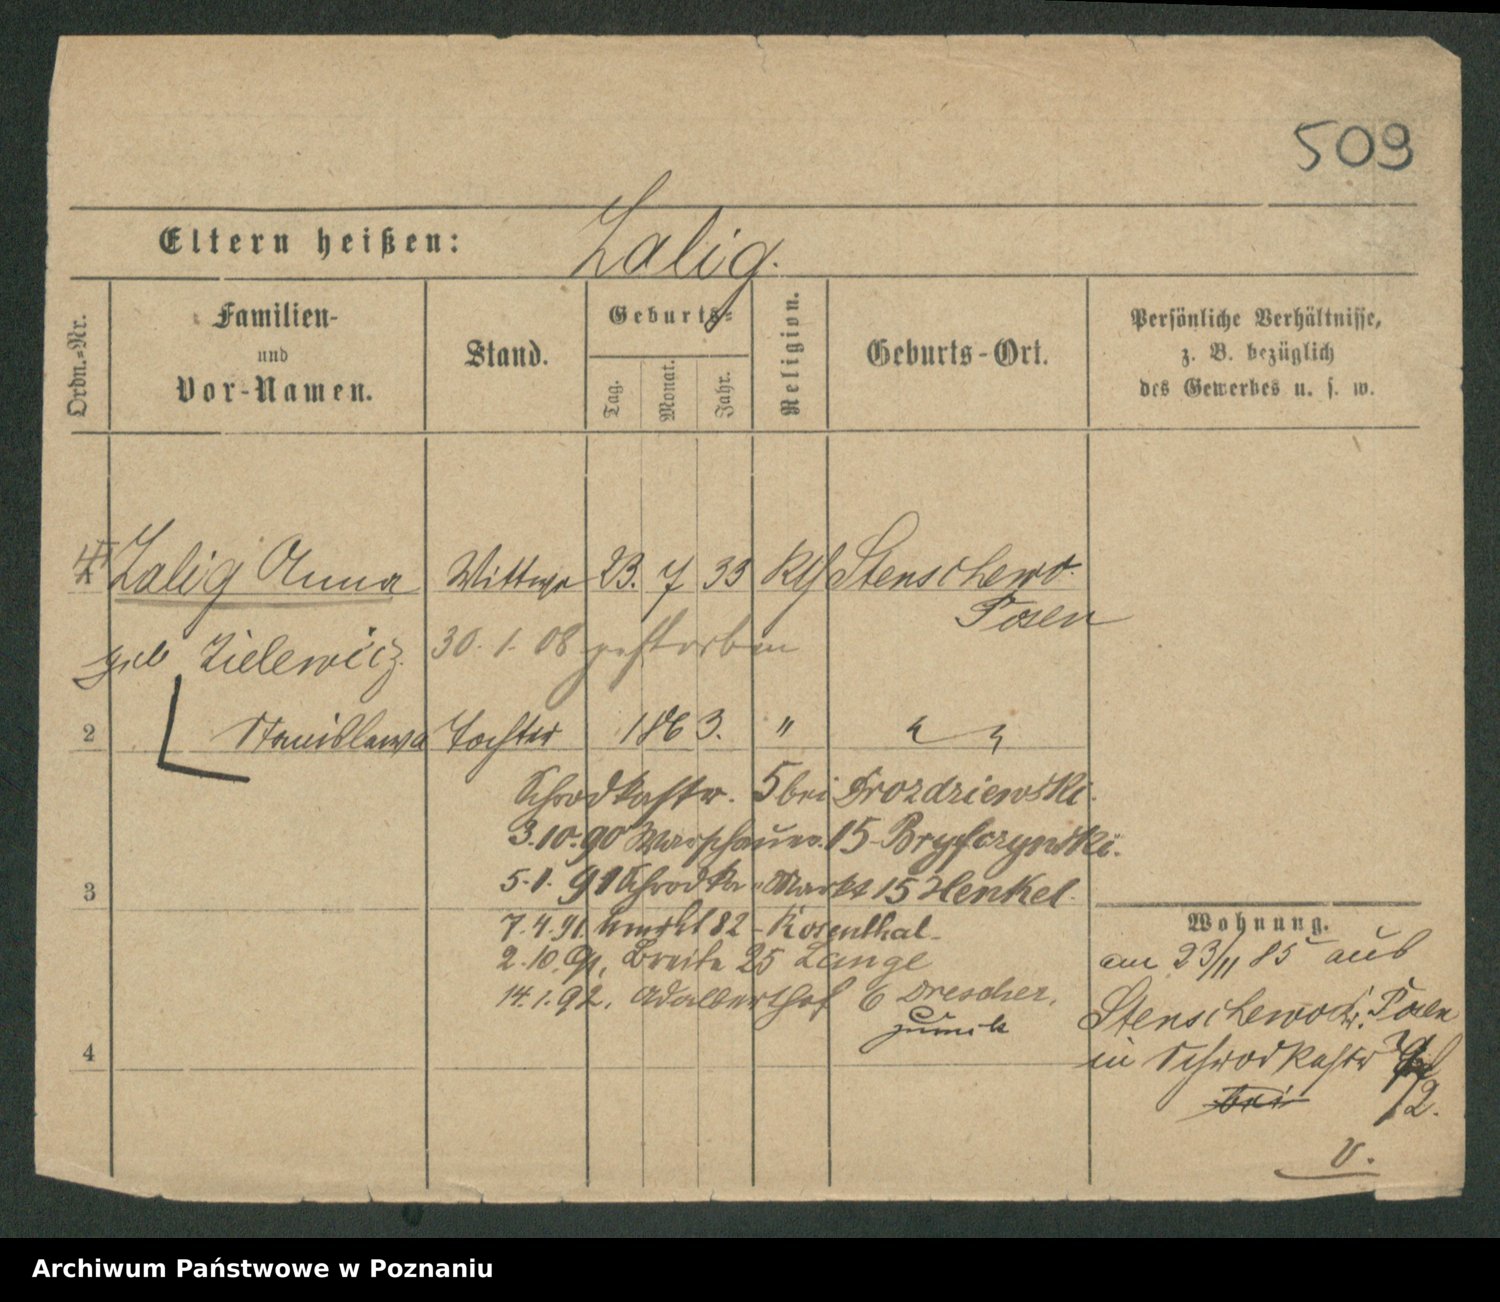 509
Eltern heißen: Zalig.
Ordn.=Nr.
Familien-
und
Vor-Namen.
Stand.
Geburts=
Tag.
Monat.
Jahr.
Religion.
Geburts-Ort.
Persönliche Verhältnisse,
z. B. bezüglich
des Gewerbes u. s. w.
Zalig Anna Wittwe 23. 7 33 kth Stenschewo.
Posen
geb Zielewicz. 30. 1. 08 gestorben
2 Stanislawa Tochter 1863. "
Schrodkastr. 5 bei Drozdziewski.
3.10.90 Warschauer. 15-
5.1.91 Schrodka-Markt 15 Henkel.
3
7.4.91. 82 - Rosenthal
2.10.91. Breite 25 Lange
14.1.92. Adalberthof 6 Drescher,
4
Wohnung.
am 23/11 85 aus
Stenschewo Kr. Posen
in Schrodkastr
bei
12.
v.
Archiwum Państwowe w Poznaniu